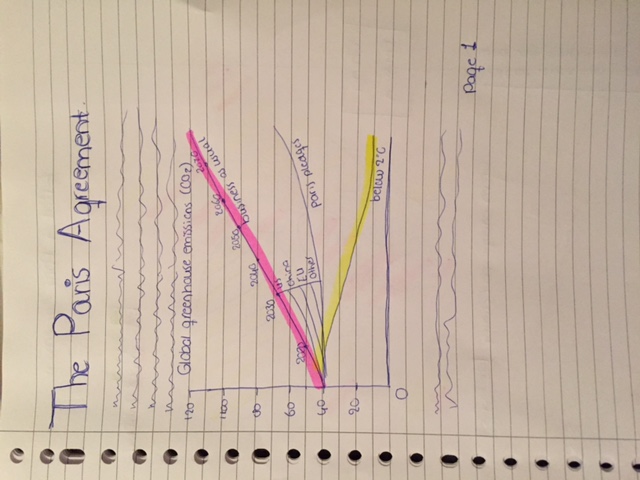 The Paris Agreement.
Global greenhouse emissions (CO₂)
120
100
80
60
40
20
0
2020
2030
2040
2050
2060
business as usual
US
China
EU
Other
Paris pledges
below 2°C
Page 1